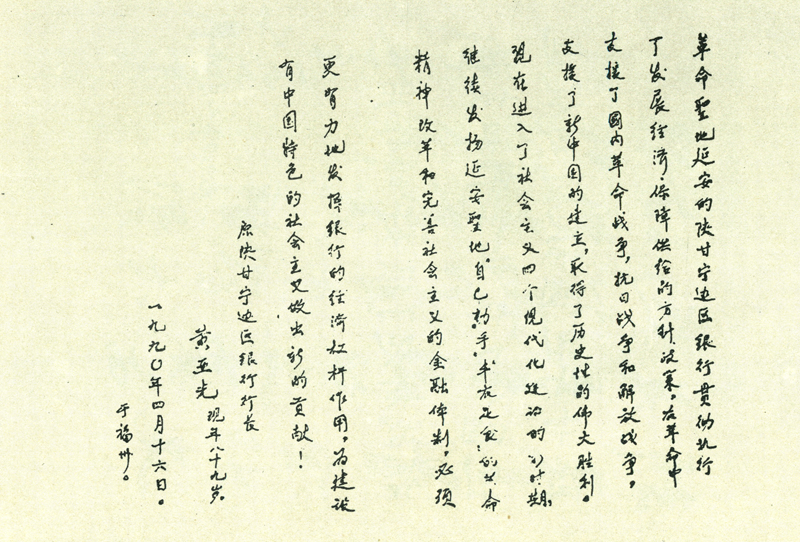 革命聖地延安的陕甘宁边区银行贯彻执行
了发展经济、保障供给的方针政策。在革命中
支援了國内革命战争，抗日战争和解放战争。
支援了新中国的建立，取得了历史性的伟大胜利。
现在进入了社会主义四个现代化建设的新时期，
继续发扬延安聖地“自己动手”“丰衣足食”的革命
精神改革和完善社会主义的金融体制，必须
更有力地发挥银行的经济杠杆作用，为建设
有中国特色的社会主义做出新的贡献！
原陕甘宁边区银行行长
黄亚光 现年八十九岁。
一九九〇年四月十六日。
于福州。